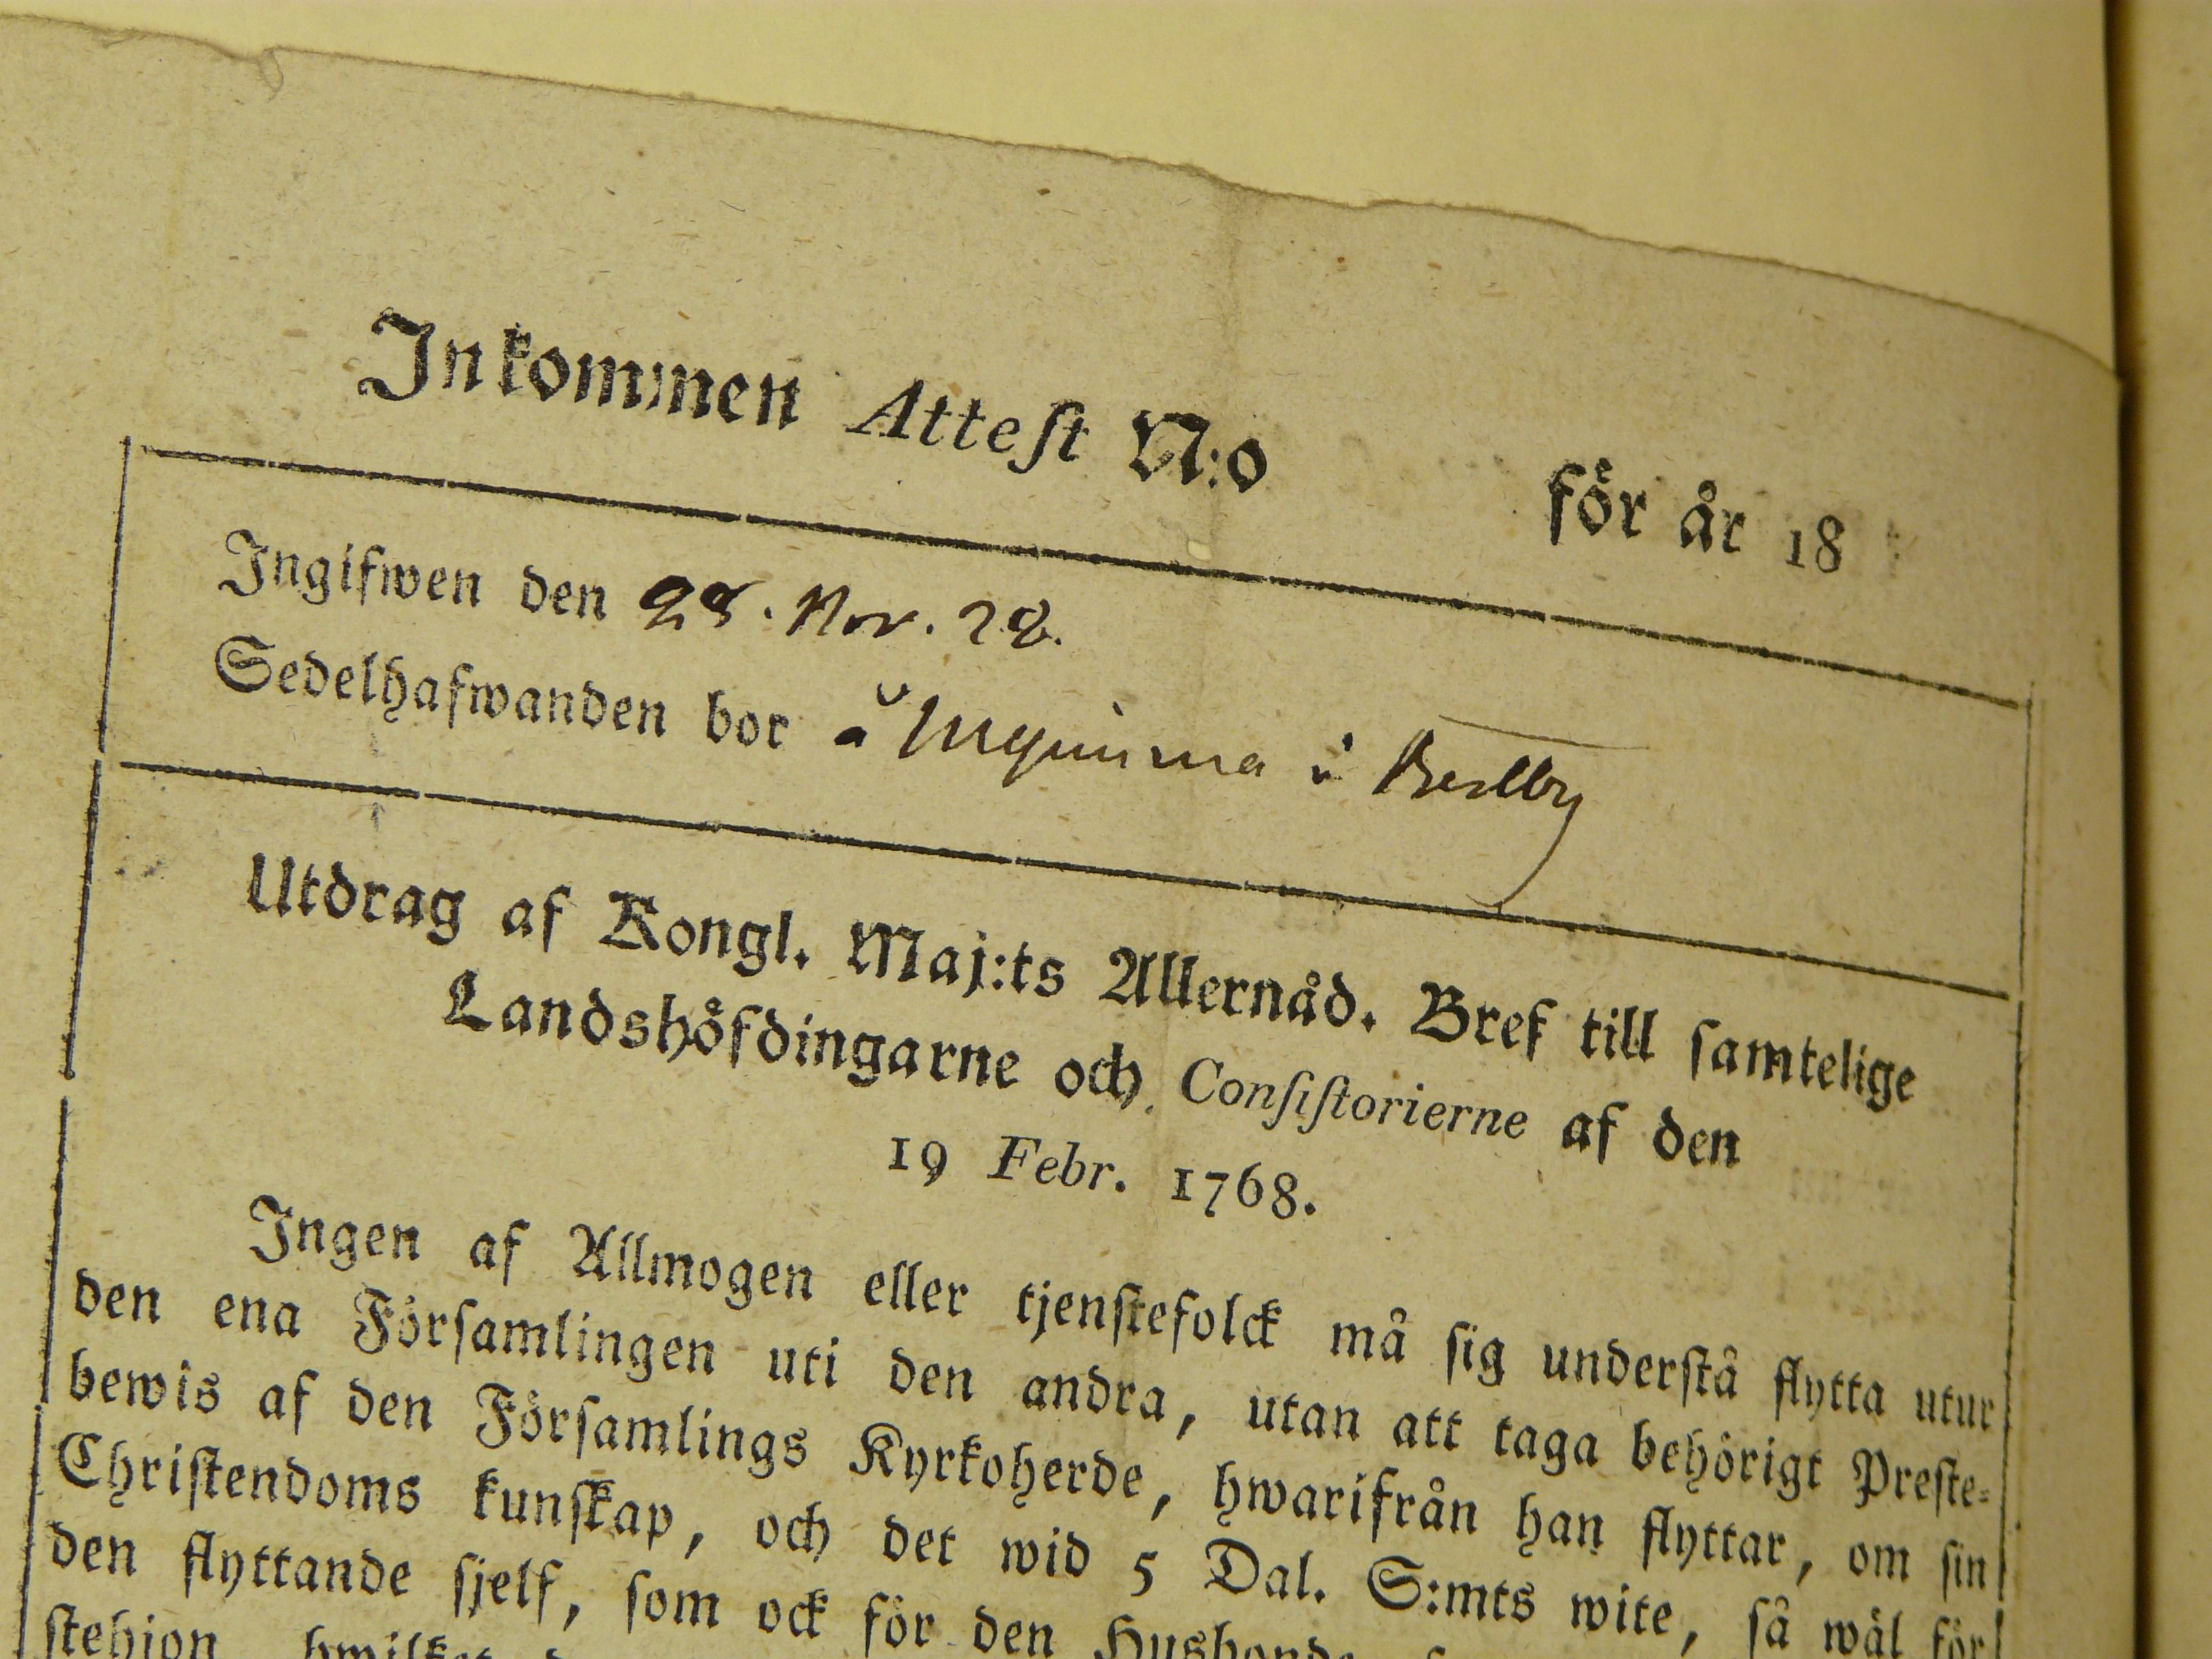 Inkommen Attest N:o för år 18
Ingifwen den 28. Nov. 28.
Sedelhafwanden bor å i
Utdrag af Kongl. Maj:ts Allernåd. Bref till samtelige
Landshöfdingarne och Consistorierne af den
19 Febr. 1768.
Ingen af Allmogen eller tjenstefolck må sig understå flytta utur
den ena Församlingen uti den andra, utan att taga behörigt Preste-
bewis af den Församlings Kyrkoherde, hwarifrån han flyttar, om sin
Christendoms kunskap, och det wid 5 Dal. S:mts wite, så wäl för
den flyttande sjelf, som ock för den